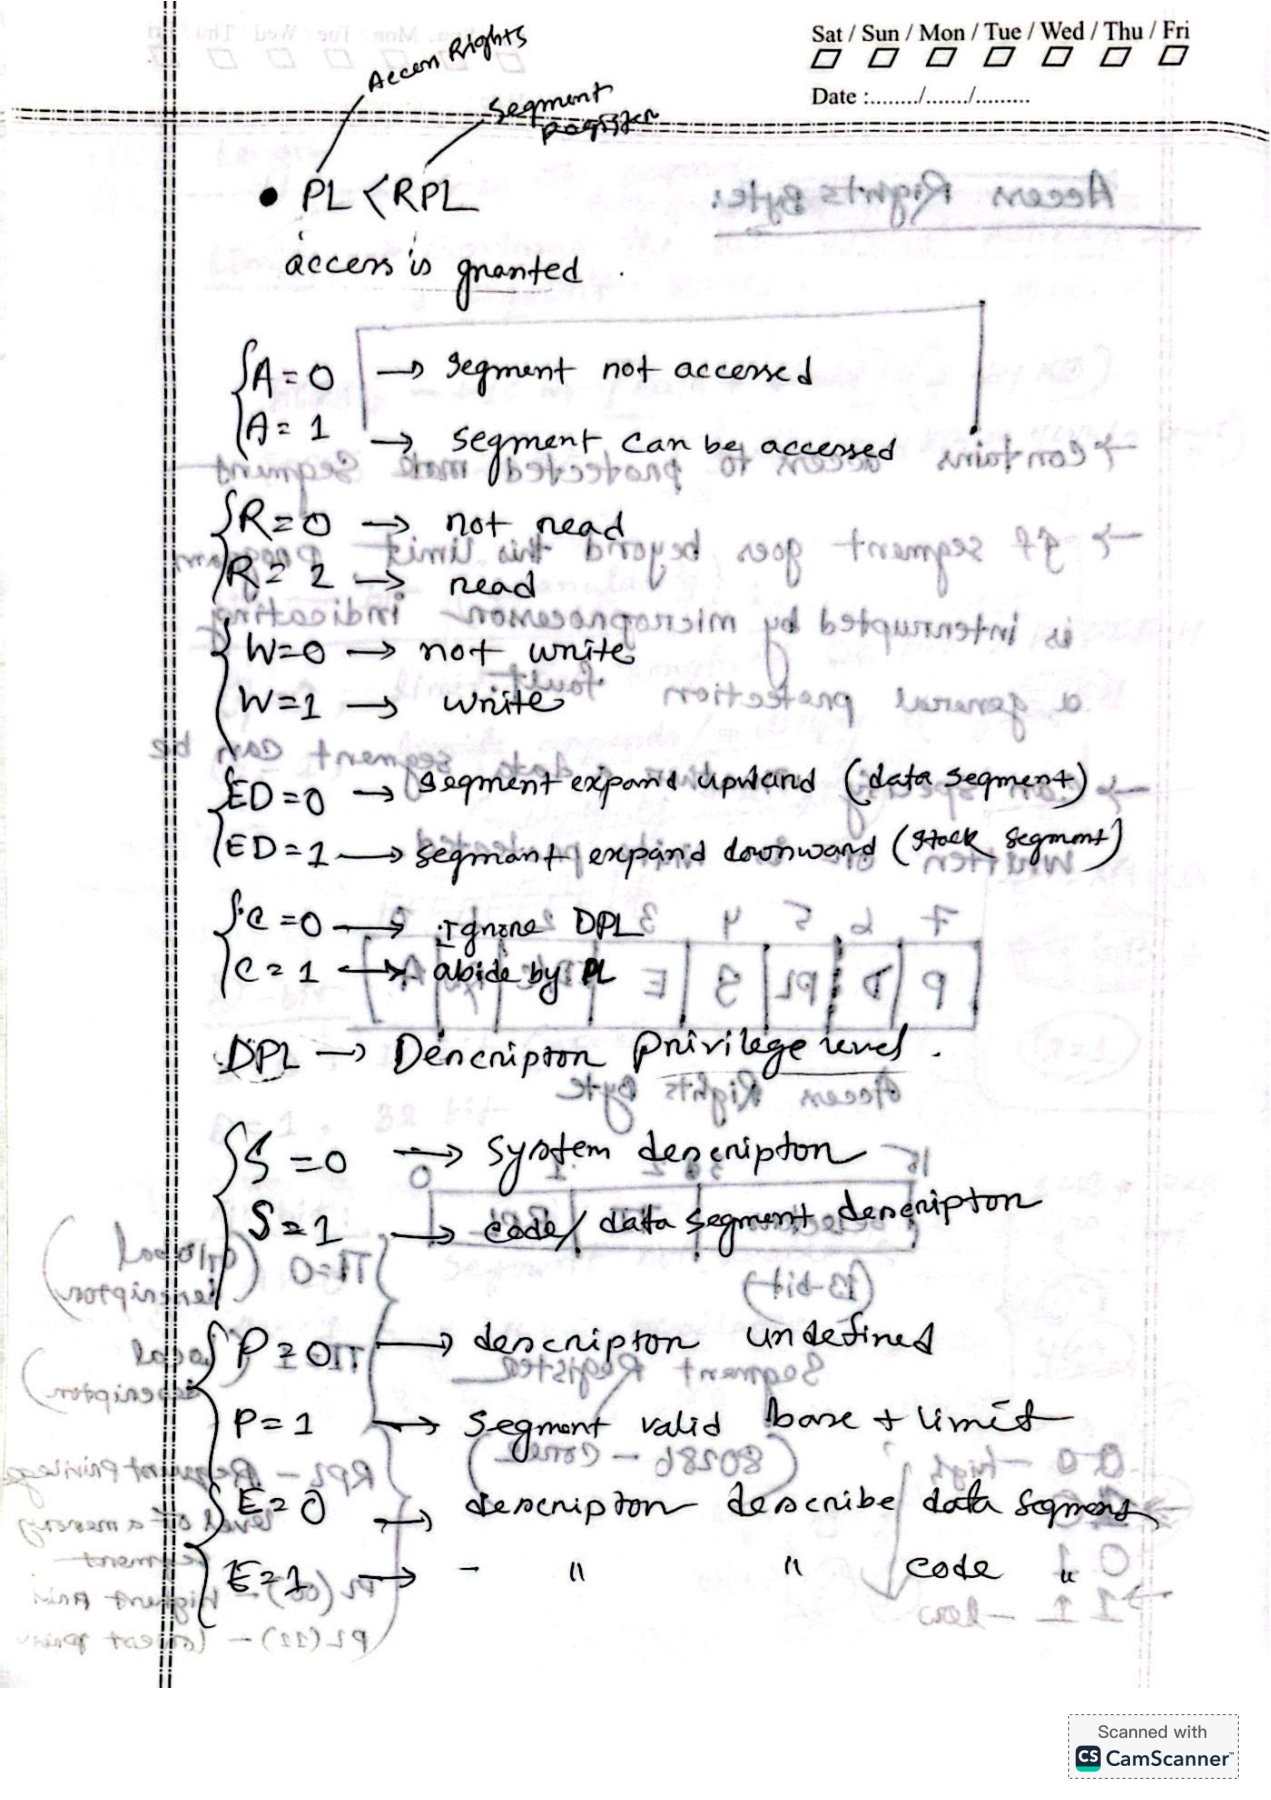 Sat / Sun / Mon / Tue / Wed / Thu / Fri
Date :......../......./.........
Access Rights
Segment
Register
• PL < RPL
access is granted .
A = 0 → segment not accessed
A = 1 → segment can be accessed
R = 0 → not read
R = 1 → read
W = 0 → not write
W = 1 → write
ED = 0 → segment expand upward (data segment)
ED = 1 → segment expand downward (stack segment)
C = 0 → Ignore DPL
C = 1 → abide by PL
DPL → Descriptor privilege level .
S = 0 → System descriptor
S = 1 → code/ data segment descriptor
P = 0 → descriptor undefined
P = 1 → segment valid base + limit
E = 0 → descriptor describe data segment
E = 1 → - " " code "
Scanned with
CS CamScanner